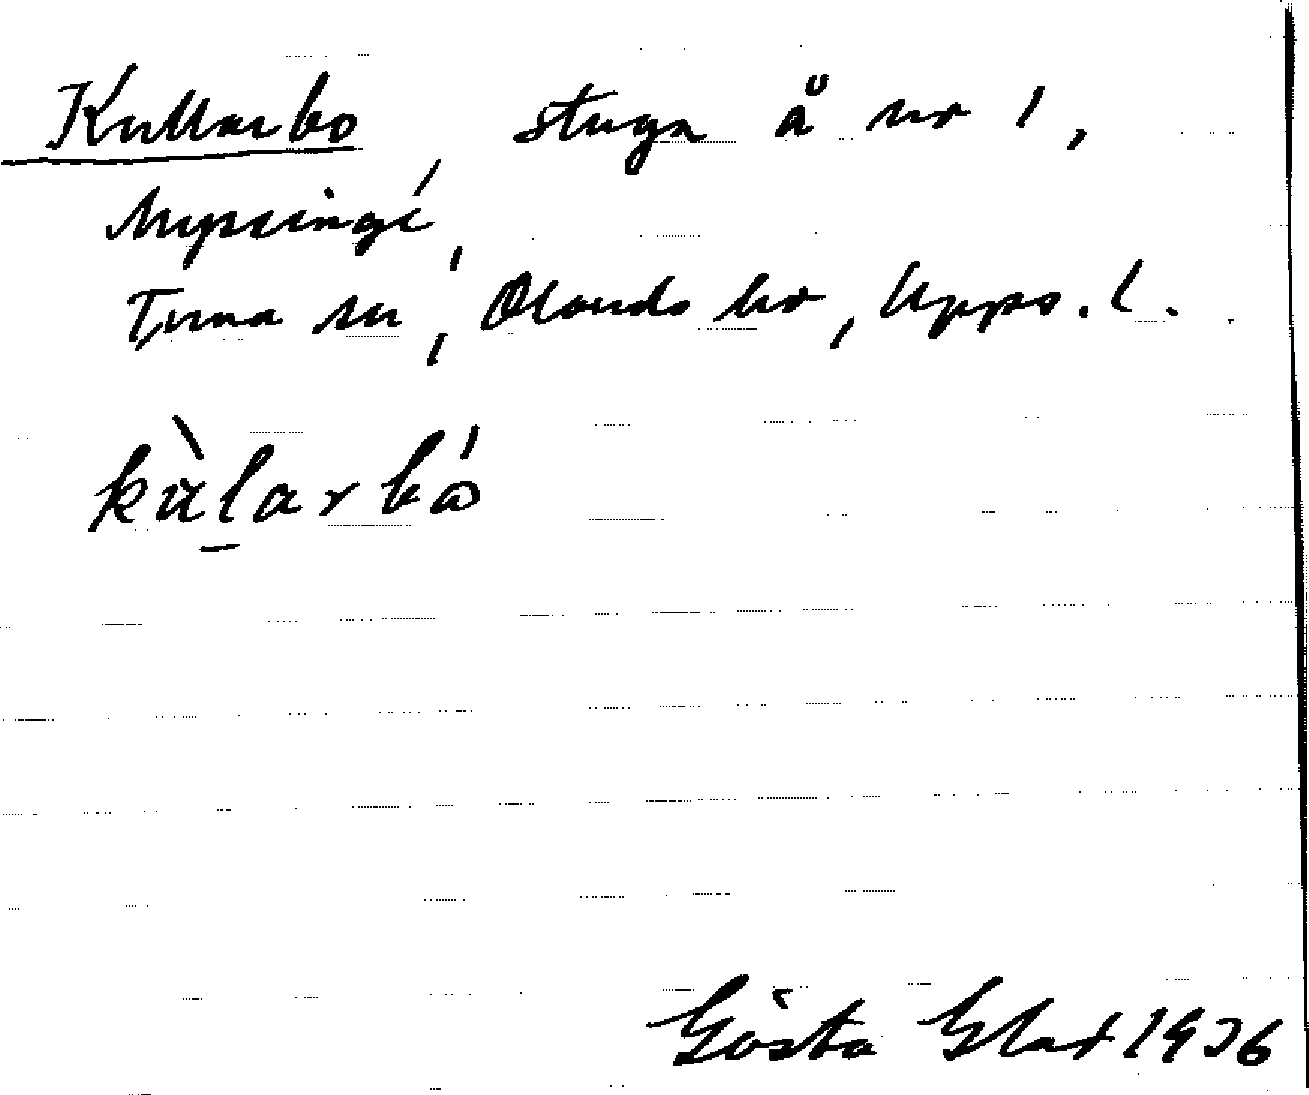 Kullarbo, stuga å nr 1,
Mypsinge,
Tuna sn, Olands hr, Upps. l.
kùlarbó
Gösta Glad 1936